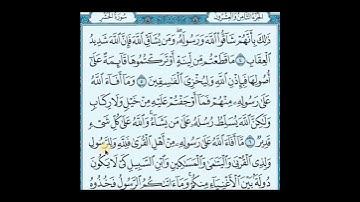 الجزء الثامن والعشرين سورة الحشر
ذَٰلِكَ بِأَنَّهُمْ شَاقُّوا۟ ٱللَّهَ وَرَسُولَهُۥ وَمَن يُشَآقِّ ٱللَّهَ فَإِنَّ ٱللَّهَ شَدِيدُ
ٱلْعِقَابِ ٤ مَا قَطَعْتُم مِّن لِّينَةٍ أَوْ تَرَكْتُمُوهَا قَآئِمَةً عَلَىٰٓ
أُصُولِهَا فَبِإِذْنِ ٱللَّهِ وَلِيُخْزِىَ ٱلْفَٰسِقِينَ ٥ وَمَآ أَفَآءَ ٱللَّهُ
عَلَىٰ رَسُولِهِۦ مِنْهُمْ فَمَآ أَوْجَفْتُمْ عَلَيْهِ مِنْ خَيْلٍ وَلَا رِكَابٍ
وَلَٰكِنَّ ٱللَّهَ يُسَلِّطُ رُسُلَهُۥ عَلَىٰ مَن يَشَآءُ وَٱللَّهُ عَلَىٰ كُلِّ شَىْءٍ
قَدِيرٌ ٦ مَّآ أَفَآءَ ٱللَّهُ عَلَىٰ رَسُولِهِۦ مِنْ أَهْلِ ٱلْقُرَىٰ فَلِلَّهِ وَلِلرَّسُولِ
وَلِذِى ٱلْقُرْبَىٰ وَٱلْيَتَٰمَىٰ وَٱلْمَسَٰكِينِ وَٱبْنِ ٱلسَّبِيلِ كَىْ لَا يَكُونَ
دُولَةًۢ بَيْنَ ٱلْأَغْنِيَآءِ مِنكُمْ وَمَآ ءَاتَىٰكُمُ ٱلرَّسُولُ فَخُذُوهُ